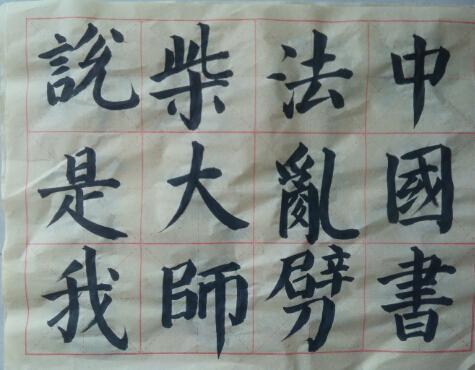 中國書
法亂劈
柴大師
說是我